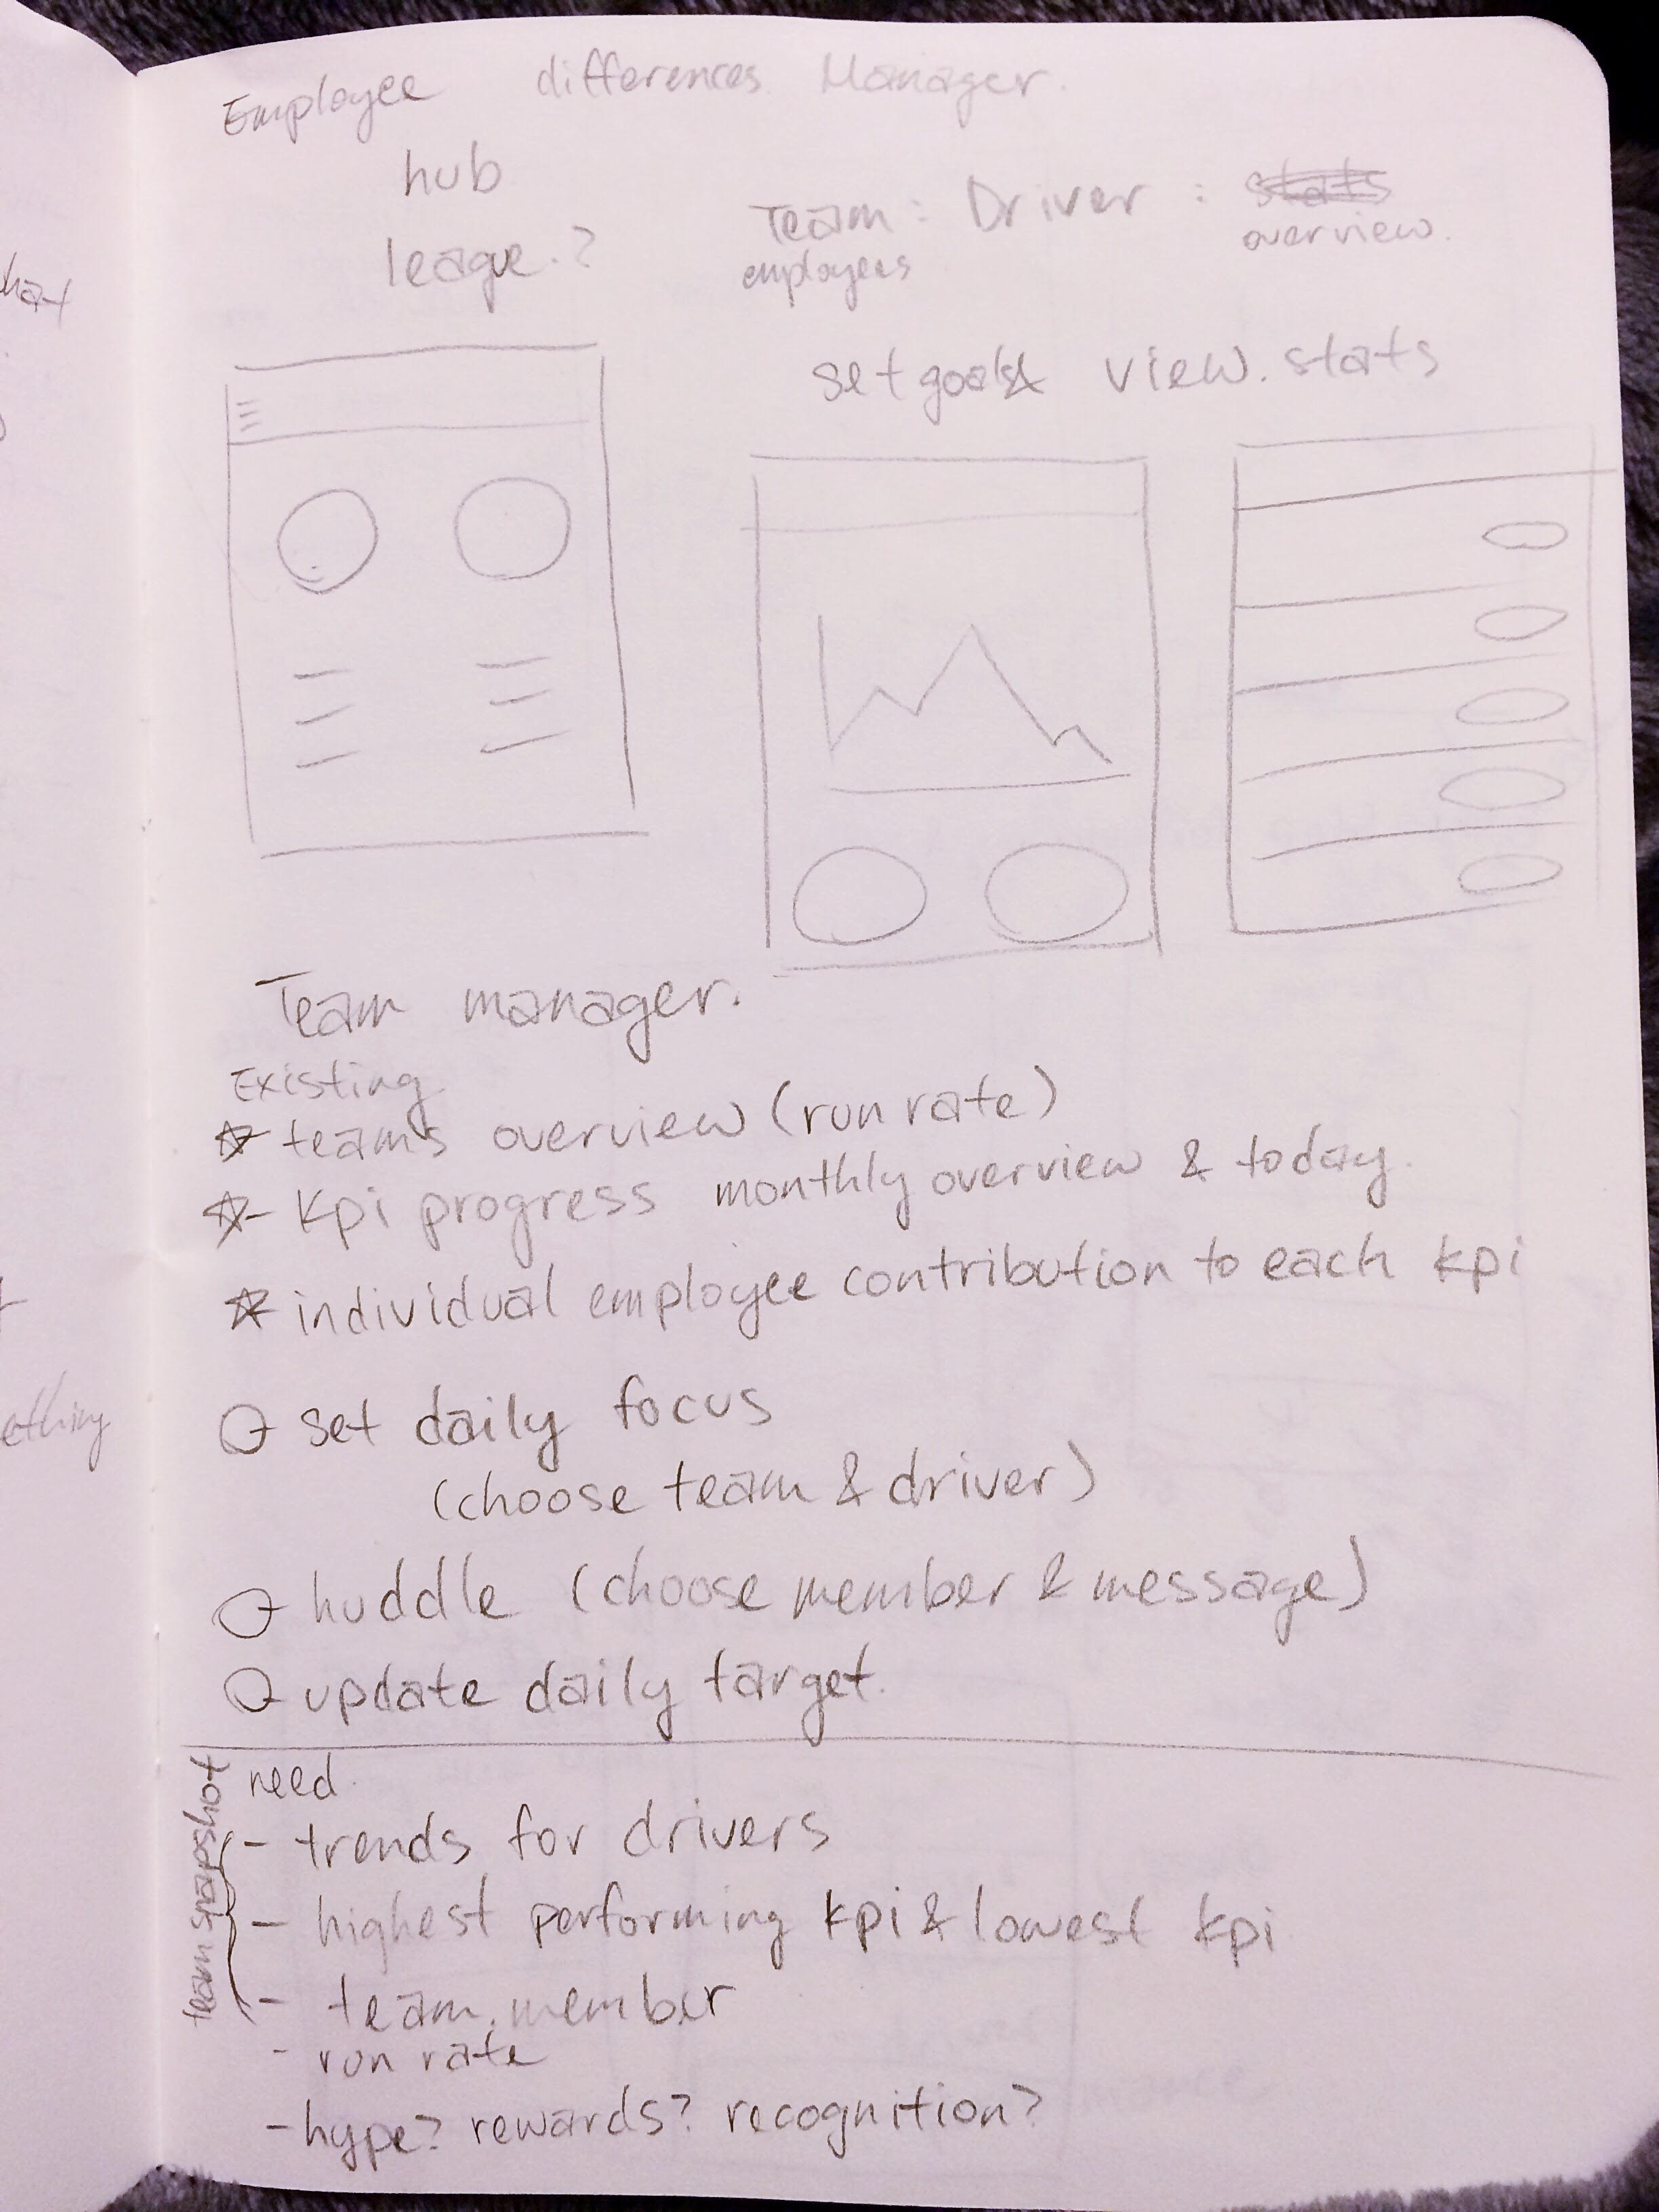 Employee differences Manager.
hub
league.?
Team: Driver : stats
employees overview.
set goals& view.stats
Team manager.
Existing
teams overview (run rate)
- Kpi progress monthly overview & today.
individual employee contribution to each kpi
set daily focus
(choose team & driver)
huddle (choose member & message)
update daily target.
need.
team snapshot
- trends for drivers
- highest performing kpi & lowest kpi
- team member
- run rate
- hype? rewards? recognition?
hat
ething